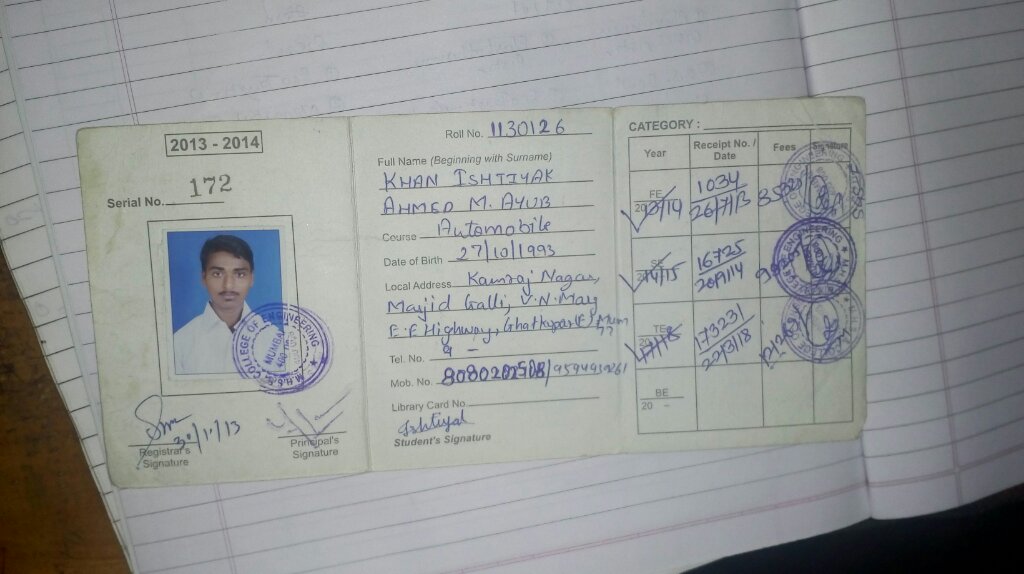 2013 - 2014
Serial No. 172
M.H.S.S. COLLEGE OF ENGINEERING
MUMBAI
30/11/13
Registrar's Signature
Principal's Signature
Roll No. 1130126
Full Name (Beginning with Surname)
KHAN ISHTIYAK
AHMED M. AYUB
Course Automobile
Date of Birth 27/10/1993
Local Address Kamraj Nagar,
Majjid Galli, V.N. Marg
E.E Highway, Ghatkopar(E) Mum
77
Tel. No.
Mob. No.
Library Card No.
Ishtiyak
Student's Signature
CATEGORY :
Year Receipt No. / Date Fees Signature
FE 2013/14 1034 26/7/13
SE 14/15 16725
TE 17/18 173231 22/3/18
BE
20 –